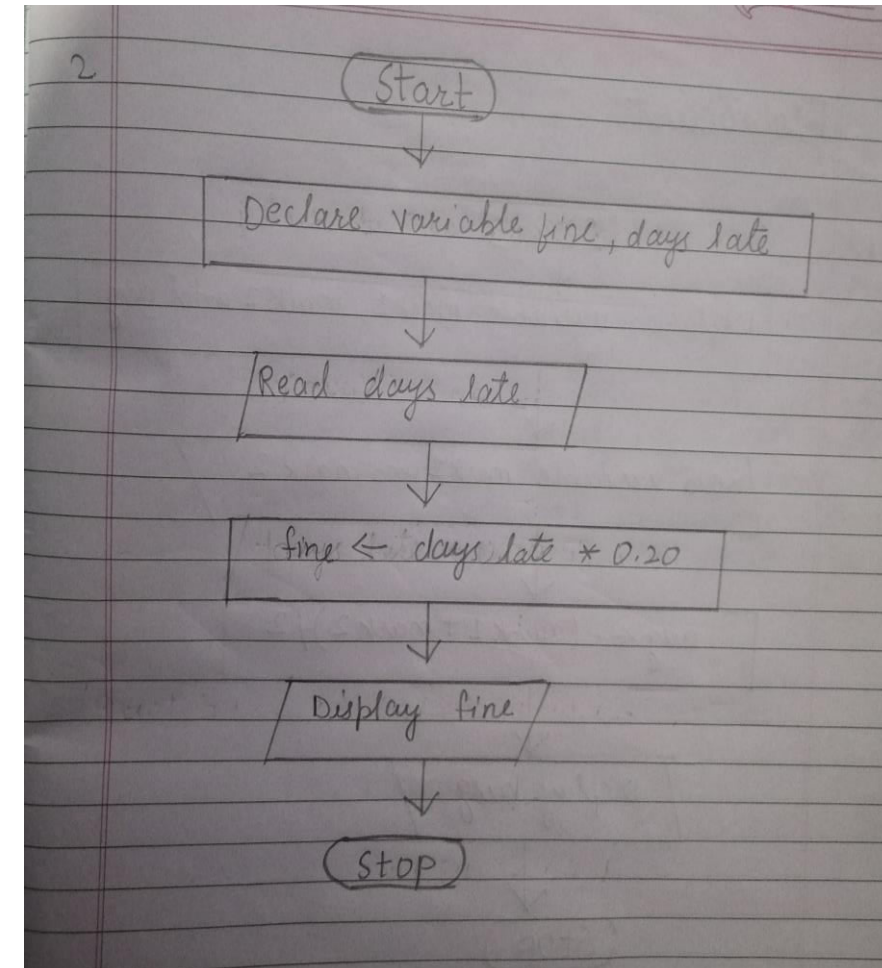 2
Start
Declare variable fine, days late
Read days late
fine ← days late * 0.20
Display fine
Stop